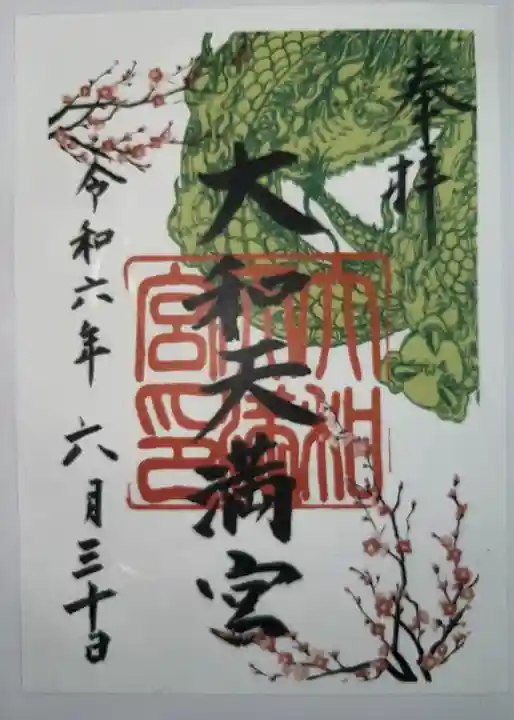 奉拝
大和天満宮
大和天満宮印
令和六年 六月三十日